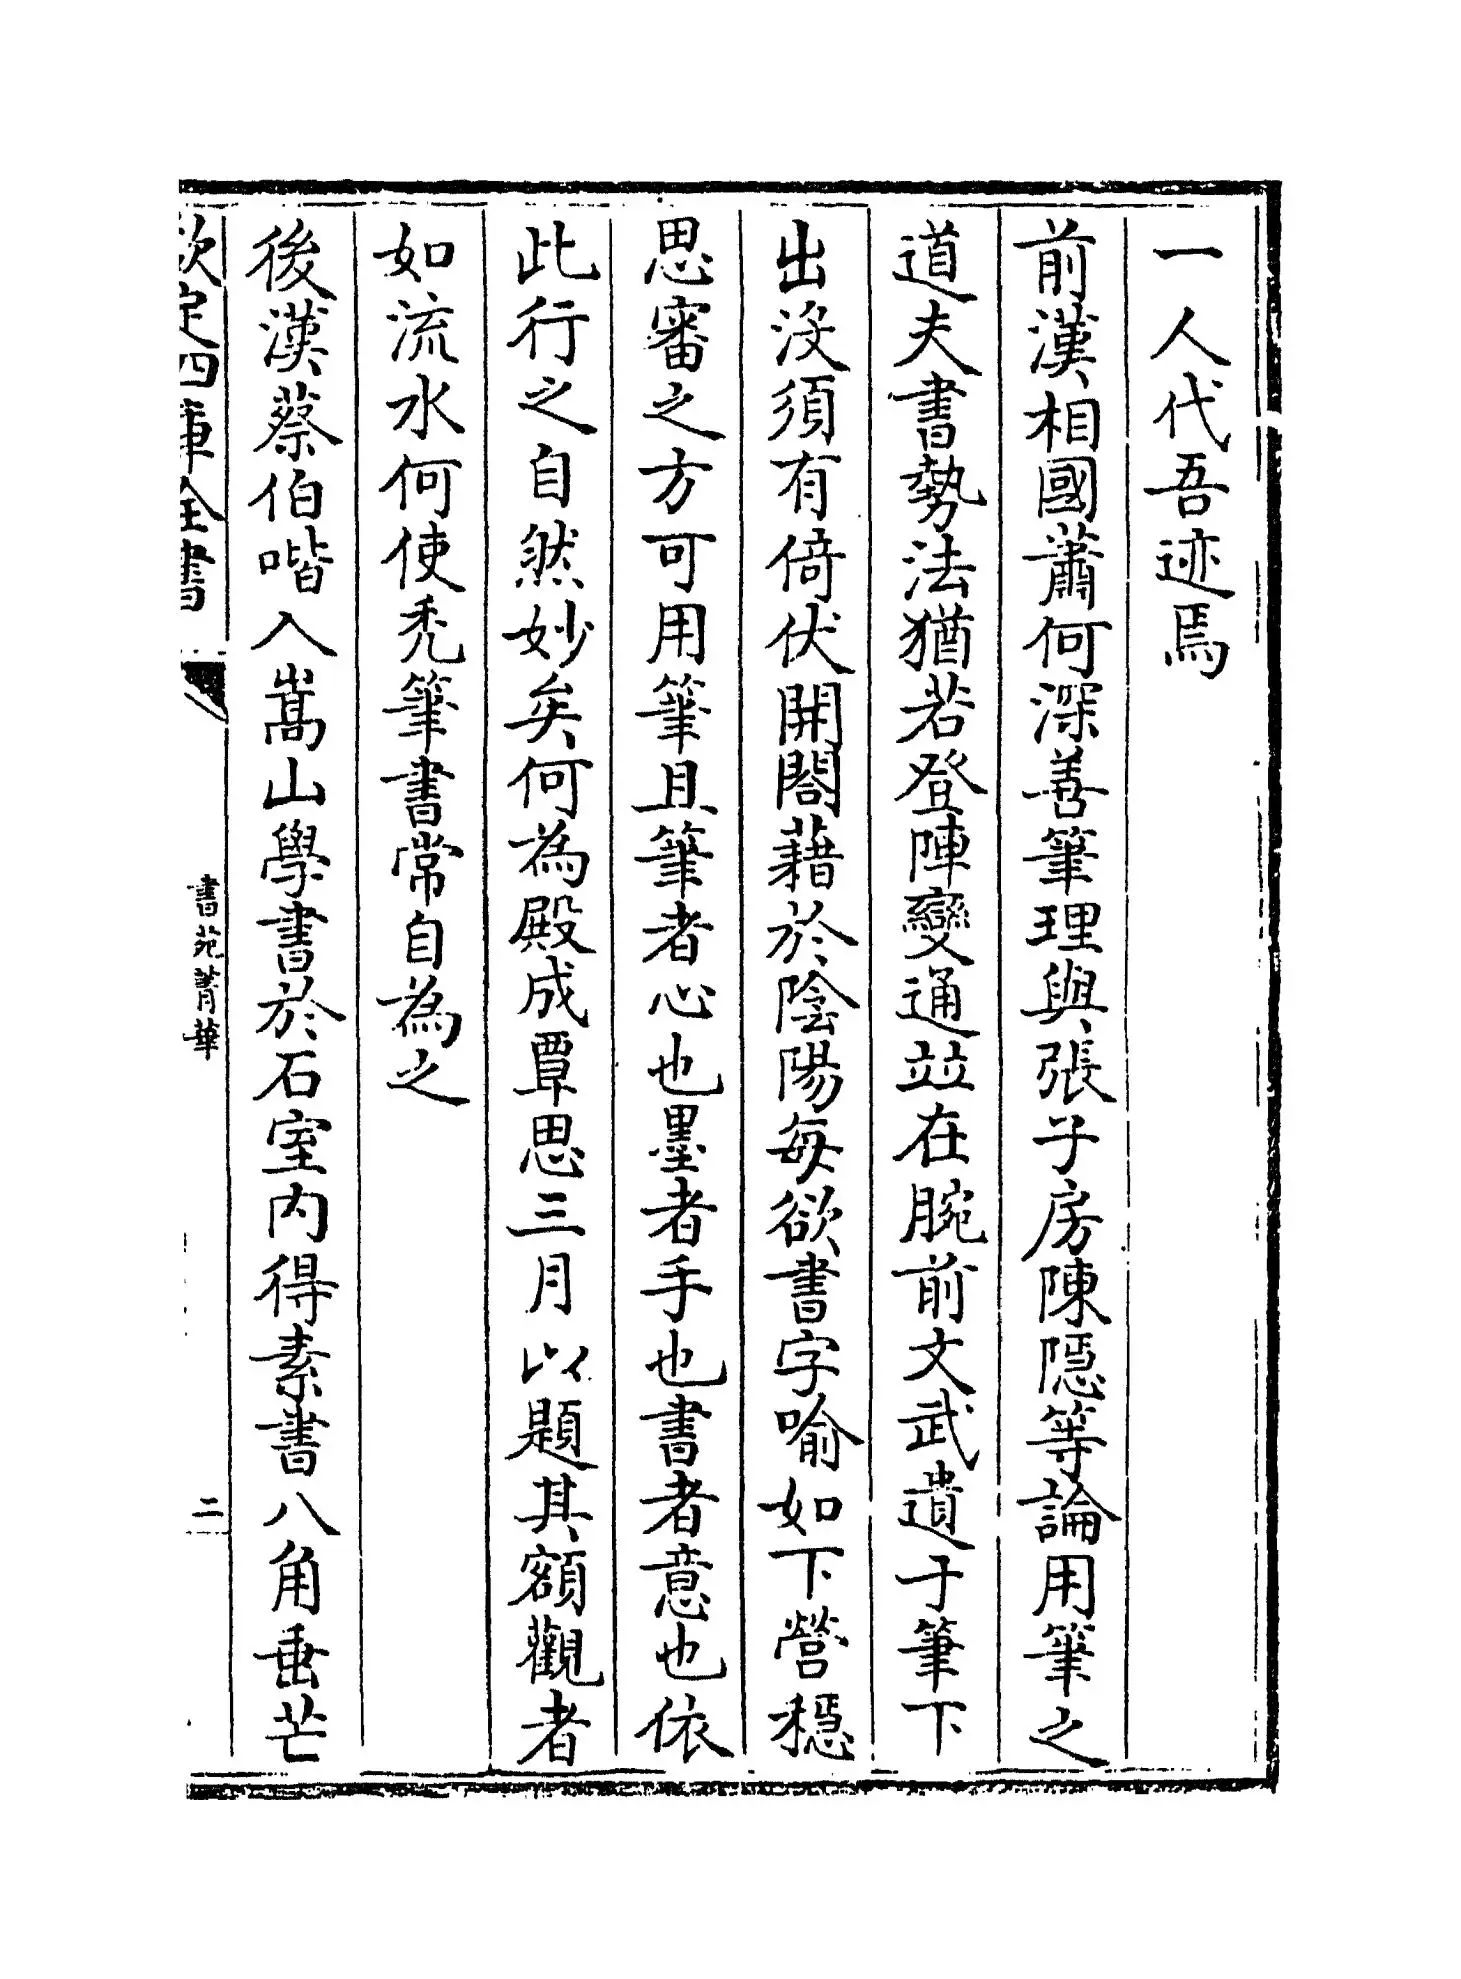 一人代吾迹焉
前漢相國蕭何深善筆理與張子房陳隱等論用筆之
道夫書勢法猶若登陣變通並在腕前文武遺于筆下
出没須有倚伏開閤藉於陰陽每欲書字喻如下營穩
思審之方可用筆且筆者心也墨者手也書者意也依
此行之自然妙矣何為殿成覃思三月以題其額觀者
如流水何使禿筆書常自為之
後漢蔡伯喈入嵩山學書於石室内得素書八角垂芒
欽定四庫全書
書苑菁華
二